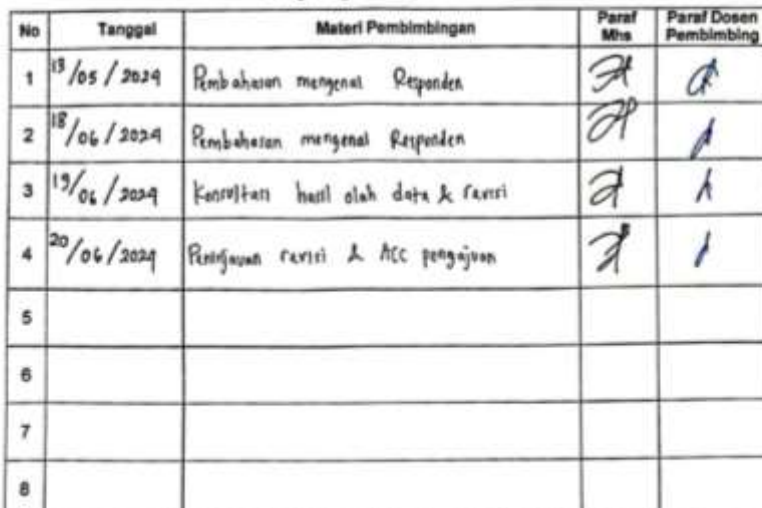 No Tanggal Materi Pembimbingan Paraf Mhs Paraf Dosen Pembimbing
1 13/05/2024 Pembahasan mengenai Responden
2 18/06/2024 Pembahasan mengenai Responden
3 19/06/2024 Konsultasi hasil olah data & revisi
4 20/06/2024 Peninjauan revisi & ACC pengajuan
5
6
7
8